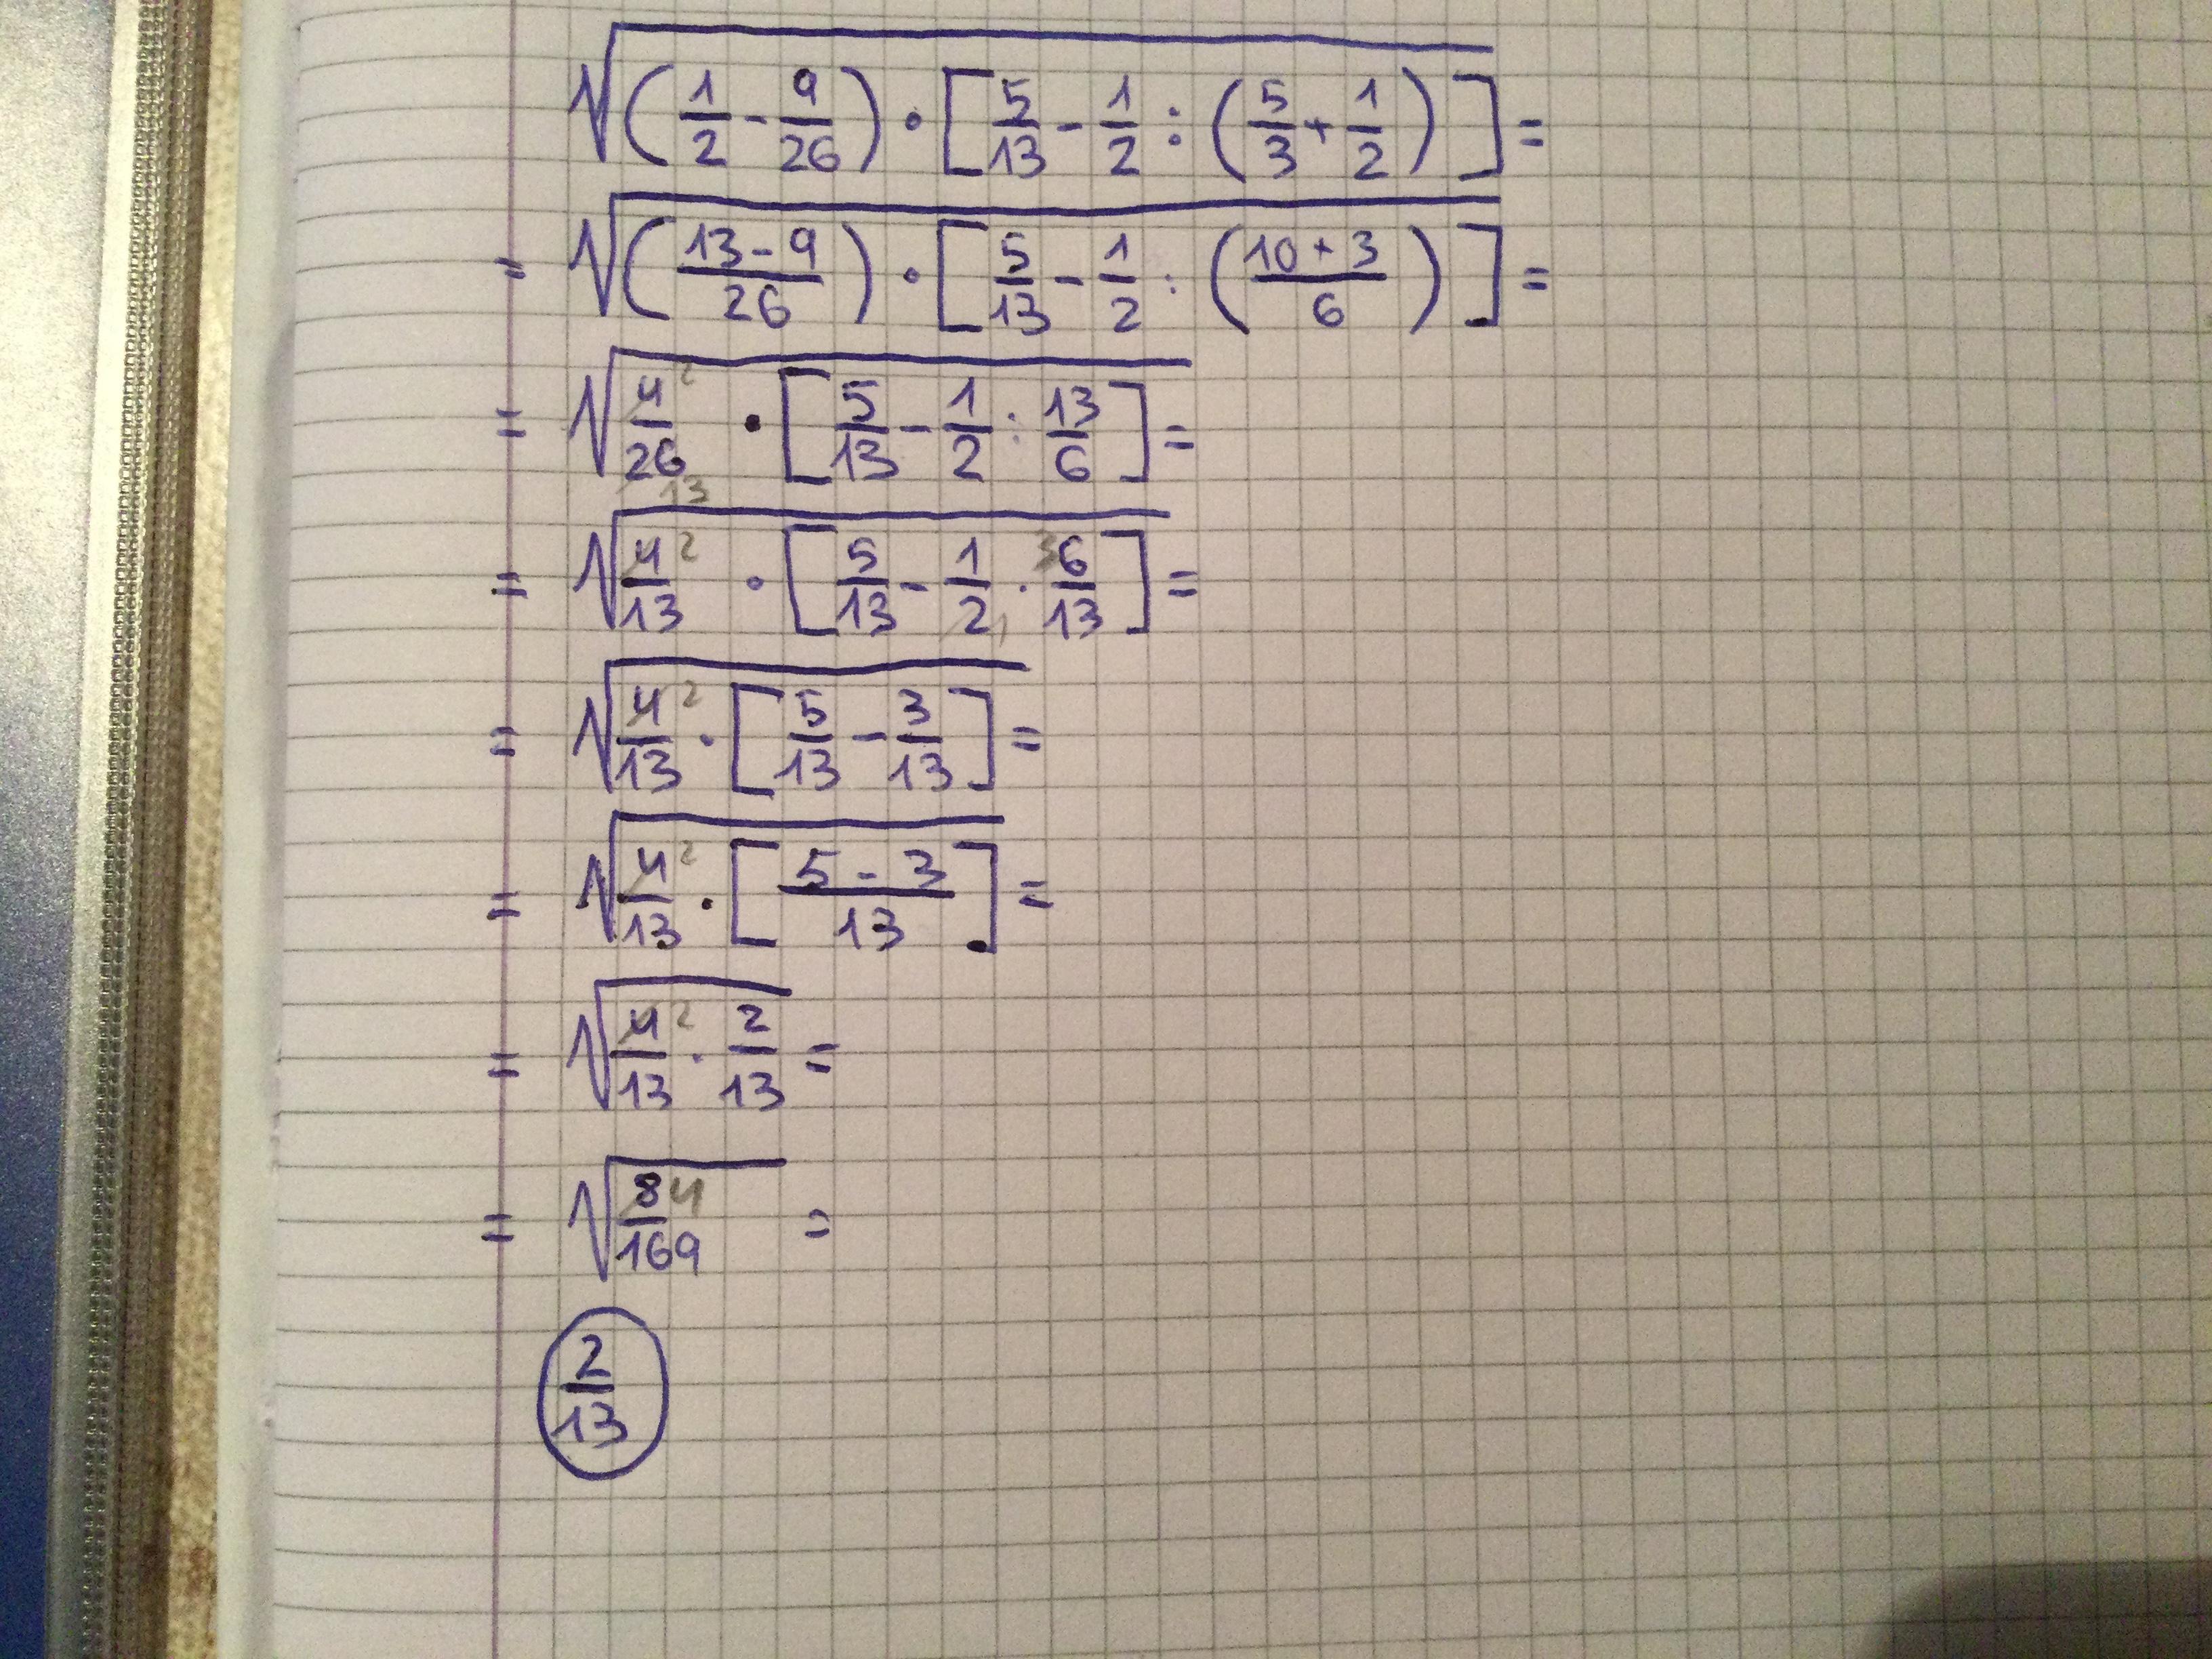 √(1/2 - 9/26) · [5/13 - 1/2 : (5/3 + 1/2)] =
= √((13 - 9)/26) · [5/13 - 1/2 : ((10 + 3)/6)] =
= √4/26 2 13 · [5/13 - 1/2 : 13/6] =
= √4/13 2 · [5/13 - 1/2 1 · 3 6/13] =
= √4/13 2 · [5/13 - 3/13] =
= √4/13 2 · [(5 - 3)/13] =
= √4/13 2 · 2/13 =
= √8/169 4 =
2/13